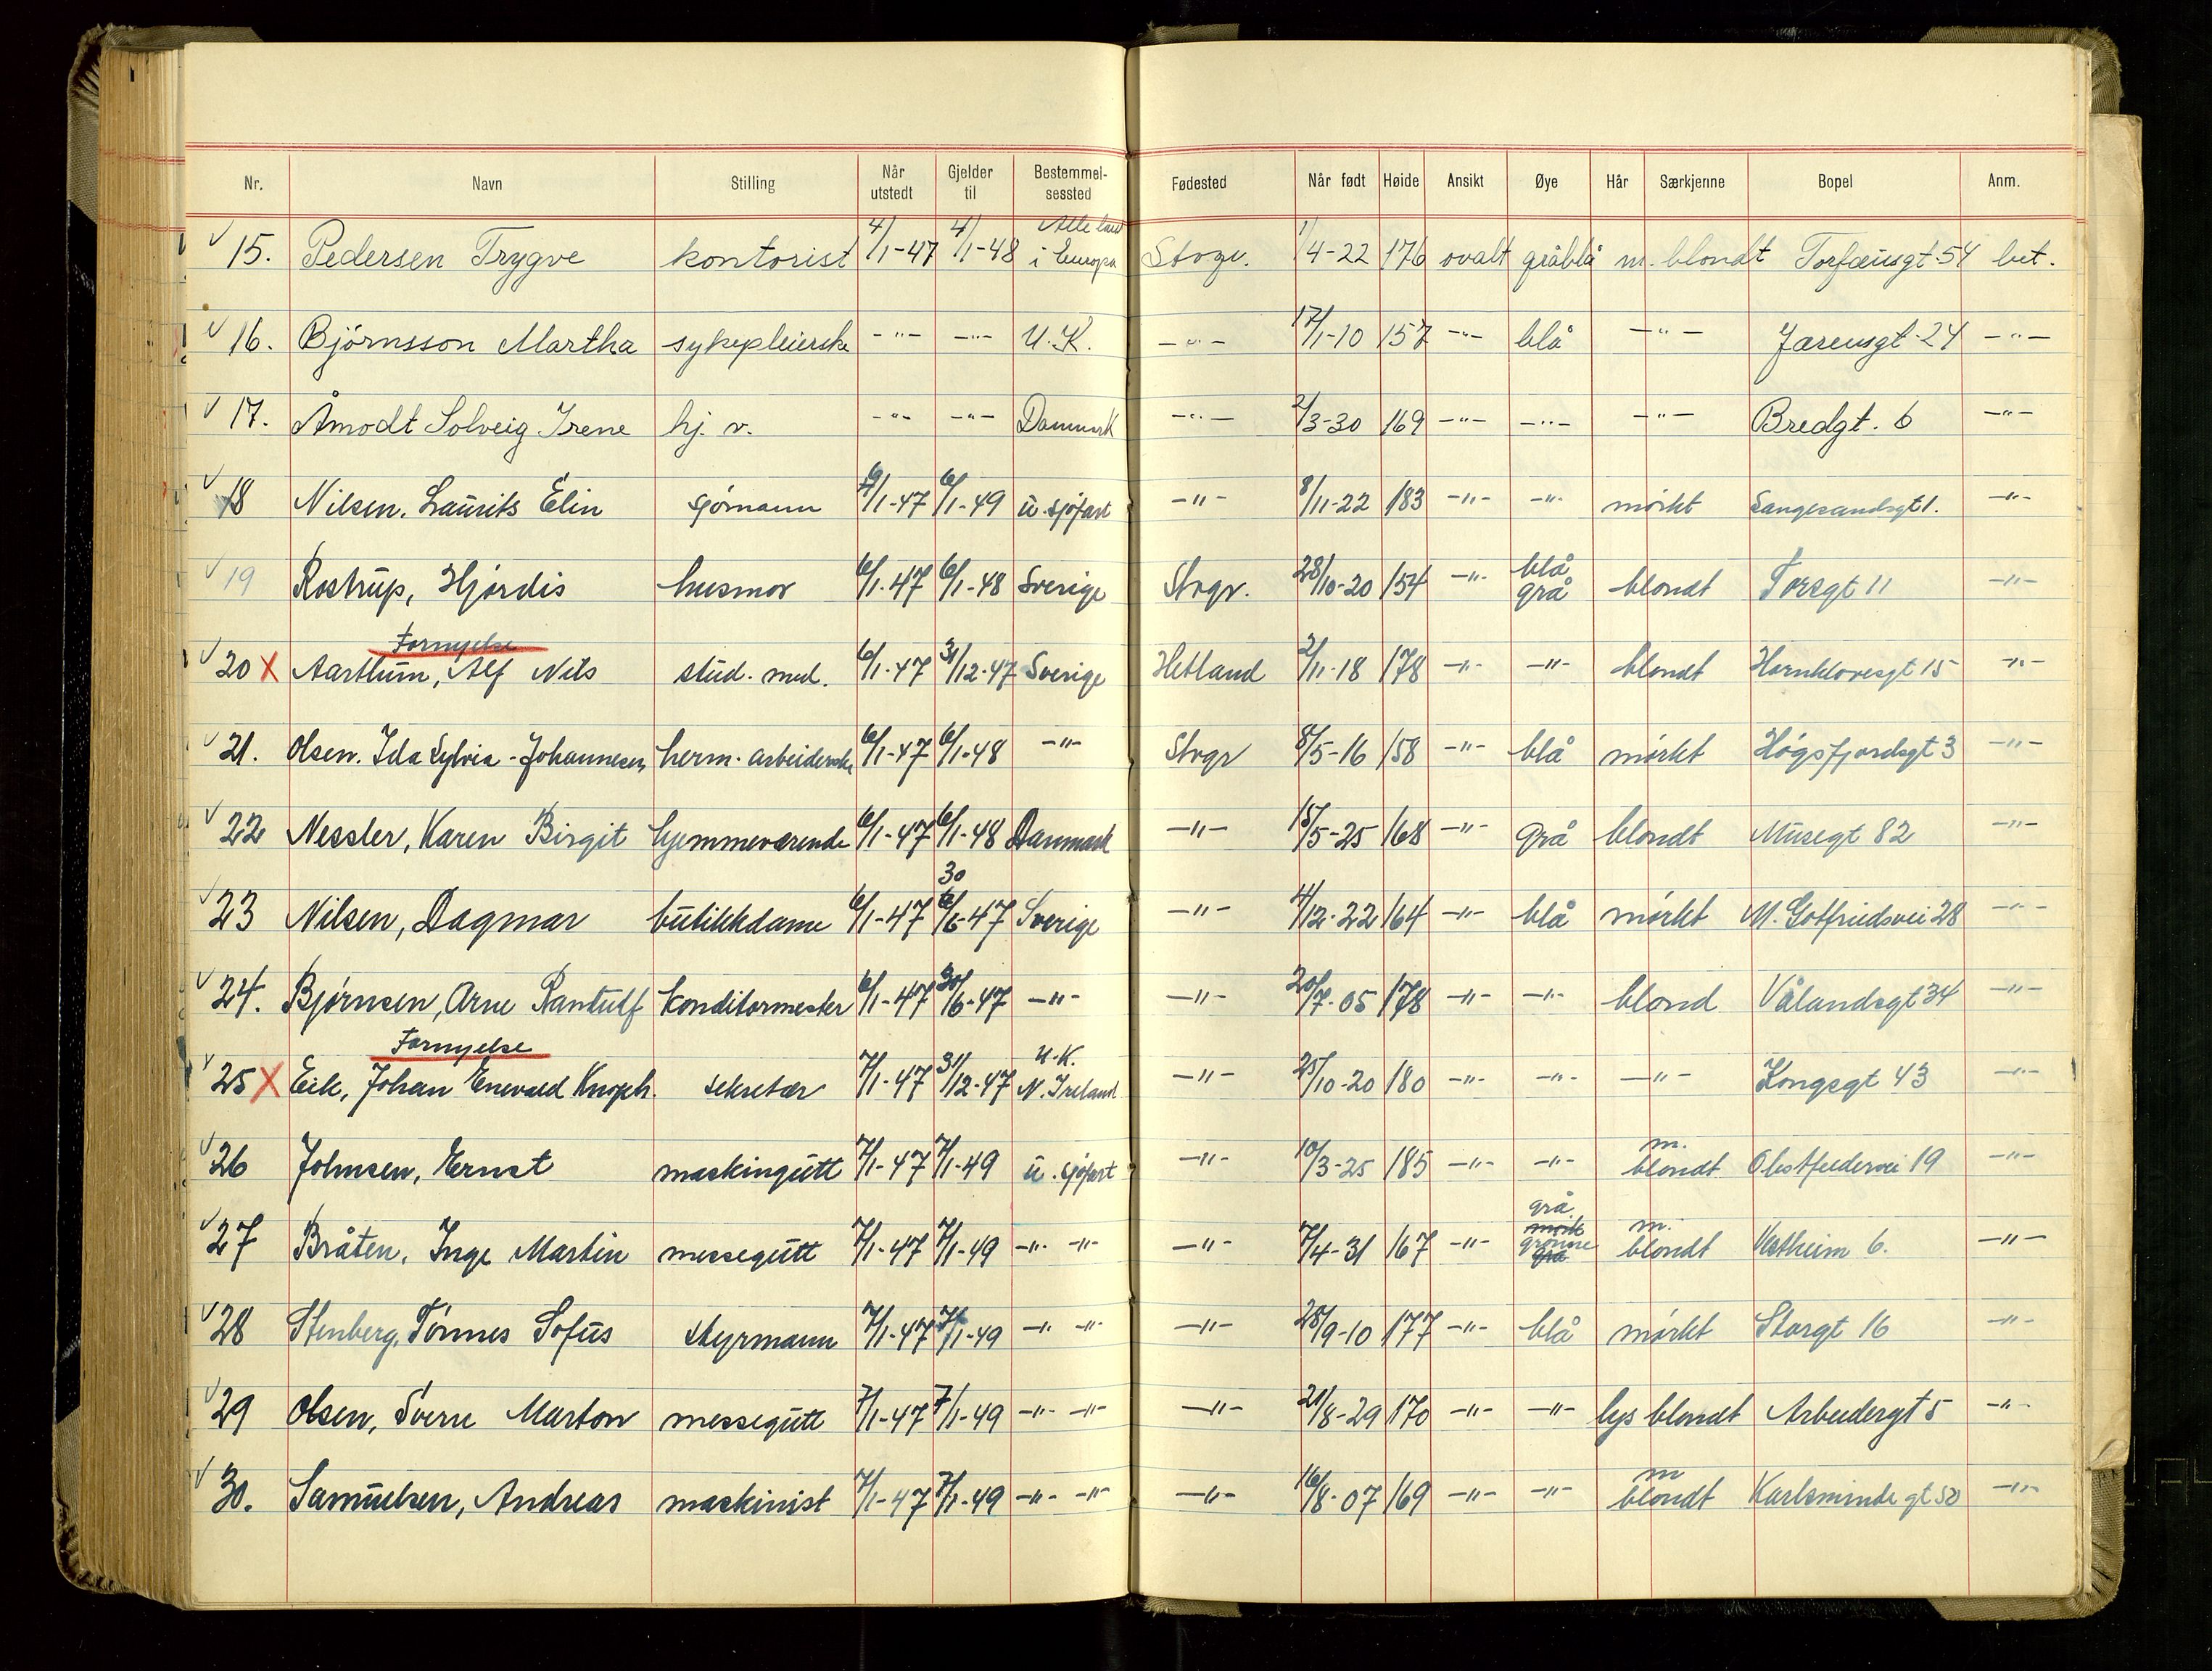 Nr. Navn Stilling Når utstedt Gjelder til Bestemmelsessted Fødested Når født Høide Ansikt Øye Hår Særkjenne Bopel Anm.
15. Pedersen Trygve kontorist 4/1-47 4/1-48 Alle land i Europa Stvgr. 1/4-22 176 ovalt gråblå m. blondt Torfæusgt. 54 bet.
16. Bjørnsson Martha sykepleierske -"- -"- U.K. -"- 17/1-10 157 -"- blå -"- Jærensgt. 24 -"-
17. Åmodt Solveig Irene hj. v. -"- -"- Danmark -"- 2/3-30 169 -"- -"- -"- Bredgt. 6 -"-
18 Nilsen, Laurits Elin sjømann 6/1-47 6/1-49 u. sjøfart -"- 8/11-22 183 -"- -"- mørkt Sangesandsgt 1. -"-
19 Rostrup, Hjørdis husmor 6/1-47 6/1-48 Sverige Stvgr. 28/10-20 154 -"- blå grå blondt Torsgt 11 -"-
Fornyelse
20 X Aarthum, Alf Nils stud. med. 6/1-47 31/12-47 Sverige Hetland 2/11-18 178 -"- -"- blondt Hornklovesgt 15 -"-
21. Olsen. Ida Sylvia - Johannesen herm. arbeiderske 6/1-47 6/1-48 -"- Stvgr 8/5-16 158 -"- blå mørkt Høgsfjordsgt 3 -"-
22 Nessler, Karen Birgit hjemmeværende 6/1-47 6/1-48 Danmark -"- 15/5-25 168 -"- grå blondt Musegt 82 -"-
23 Nilsen, Dagmar butikkdame 6/1-47 30/6-47 Sverige -"- 4/12-22 164 -"- blå mørkt M. Gotfriedsvei 28 -"-
24. Bjørnsen, Arne konditormester 6/1-47 30/6-47 -"- -"- 20/7-05 178 -"- -"- blond Vålandsgt 34 -"-
Fornyelse
25 X Eik, Johan Enevald Knoph. sekretær 7/1-47 31/12-47 U.K. N. Ireland -"- 25/10-20 180 -"- -"- -"- Kongsgt 43 -"-
26 Johnsen, Ernst maskingutt 7/1-47 7/1-49 u. sjøfart -"- 10/3-25 185 -"- -"- m. blondt Obstfeldersvei 19 -"-
27 Bråten, Inge Martin messegutt 7/1-47 7/1-49 -"- -"- -"- 7/4-31 167 -"- grå mørk grønne grå m. blondt Vestheim 6. -"-
28 Stenberg, Tønnes Sofus styrmann 7/1-47 7/1-49 -"- -"- -"- 28/9-10 177 -"- blå mørkt Storgt 16 -"-
29 Olsen, Sverre Marton messegutt 7/1-47 7/1-49 -"- -"- -"- 21/8-29 170 -"- -"- lys blondt Arbeidergt 5 -"-
30. Samuelsen, Andreas maskinist 7/1-47 7/1-49 -"- -"- -"- 16/8-07 169 -"- -"- m blondt Karlsminde gt 50 -"-